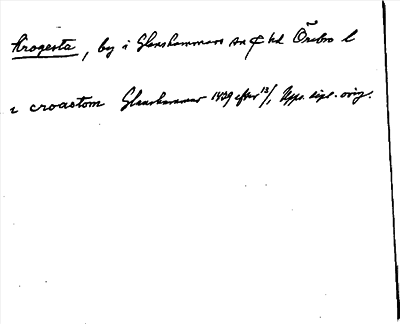 Krogesta, by i Glanshammars sn & hd Örebro l
i croastom Glanshammar 1439 efter 13/1 Upps. dipl. orig.